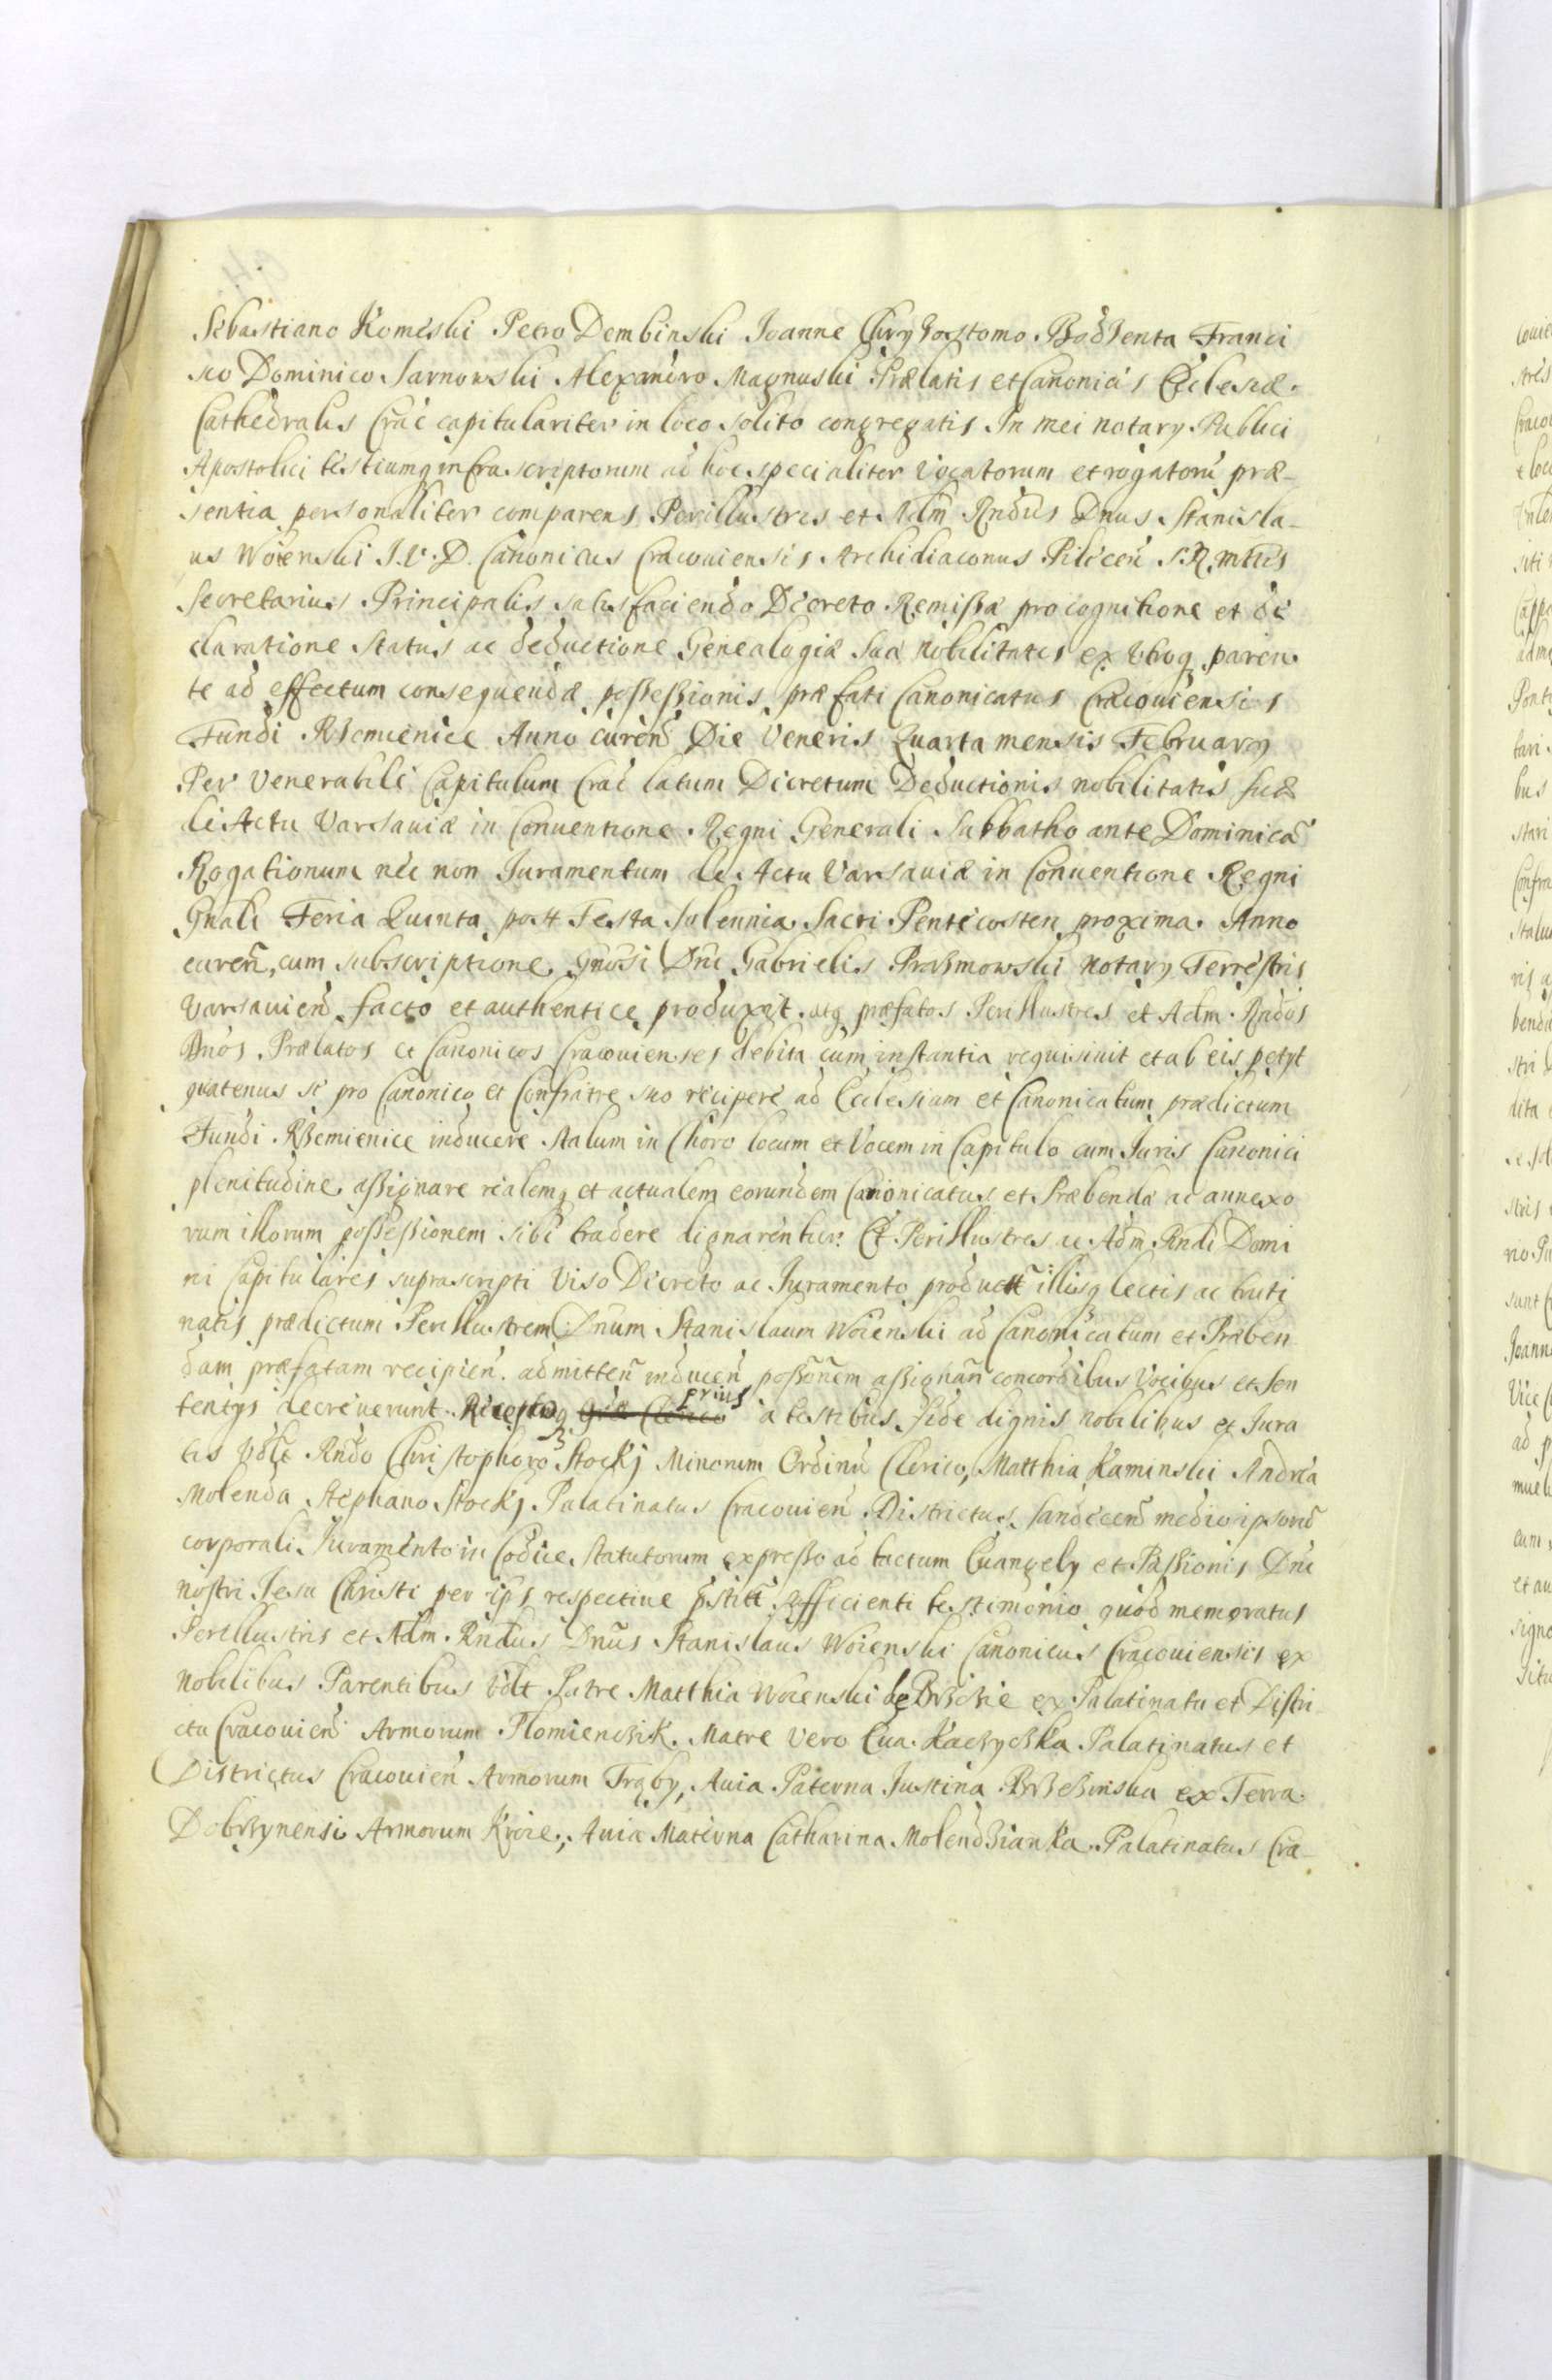 Sebastiano Komeski Petro Dembinski Joanne Chryzostomo Bodzenta Franci
sco Dominico Sarnowski Alexandro Magnuski Prælatis et Canonicis Ecclesiæ
Cathedralis Crac capitulariter in loco solito congregatis In mei notarÿ Publici
Apostolici testiumq infrascriptorum ad hoc specialiter Vocatorum et rogatorũ præ-
sentia personaliter comparens Perillustris et Adm Rndus Dnus Stanisla-
us Woienski J.V.D. Canonicus Cracouiensis Archidiaconus Pilicen S.R. mttis
Secretarius Principalis satisfaciendo Decreto Remissæ pro cognitione et de
claratione Status ac deductione Genealogiæ Suæ Nobilitatis ex Vtroq paren
te ad effectum consequendæ possessionis præfati Canonicatus Cracouiensis
Fundi Rzemienice Anno curen Die Veneris Quarta mensis Februarÿ
Per Venerabile Capitulum Crac latum Decretum Deductionis nobilitatis suæ
de Actu Varsauiæ in Conuentione Regni Generali Sabbatho ante Dominicã
Rogationum nec non Juramentum de Actu Varsauiæ in Conuentione Regni
Gnali Feria Quinta post Festa Solennia Sacri Pentecosten proxima Anno
curen, cum subscriptione Gnosi Dni Gabrielis Prazmowski Notarÿ Terrestris
Varsauien facto et authentice produxit atq præfatos Perillustres et Adm Rndos
Dnos Prælatos et Canonicos Cracouienses debita cum instantia requisiuit et ab eis petÿt
quatenus se pro Canonico et Confratre suo recipere ad Ecclesiam et Canonicatum prædictum
Fundi Rzemienice inducere Stalum in Choro locum et Vocem in Capitulo cum Juris Canonici
plenitudine assignare realemq et actualem eorundem Canonicatus et Præbendæ ac annexo
rum illorum possessionem sibi tradere dignarentur. Et Perillustres ac Adm Rndi Domi
ni Capitulares suprascripti Viso Decreto ac Juramento product illisq lectis ac truti
natis prædictum Perillustrem Dnum Stanislaum Woienski ad Canonicatum et Præben
dam præfatam recipien admitten inducen possonem assignan concordibus Vocibus et Sen
tentÿs decreuerunt. Receptoq prius a testibus fide dignis nobilibus et Jura
tis Vdlt Rndo Christophoro Stockj Minorum Ordinũ Clerico, Matthia Kaminski Andrea
Molenda Stephano Stockj Palatinatus Cracouien Districtus Sandecen medio ipsorũ
corporali Juramento in Codice statutorum expresso ad tactum Euangelÿ et Passionis Dni
nostri Jesu Christi per ipsos respectiue pstiti sufficienti testimonio quod memoratus
Perillustris et Adm Rndus Dnus Stanislaus Woienski Canonicus Cracouiensis ex
Nobilibus Parentibus Vdlt Patre Matthia Woienski de Brzezie ex Palatinatu et Distri
ctu Cracouien Armorum Plomienczik. Matre Vero Eua Kaczyczka Palatinatus et
Districtus Cracouien Armorum Trąby, Auia Paterna Justina Brzezinska ex Terra
Dobrzynensi Armorum Kroie, Auia Materna Catharina Molendzianka Palatinatus Cra-